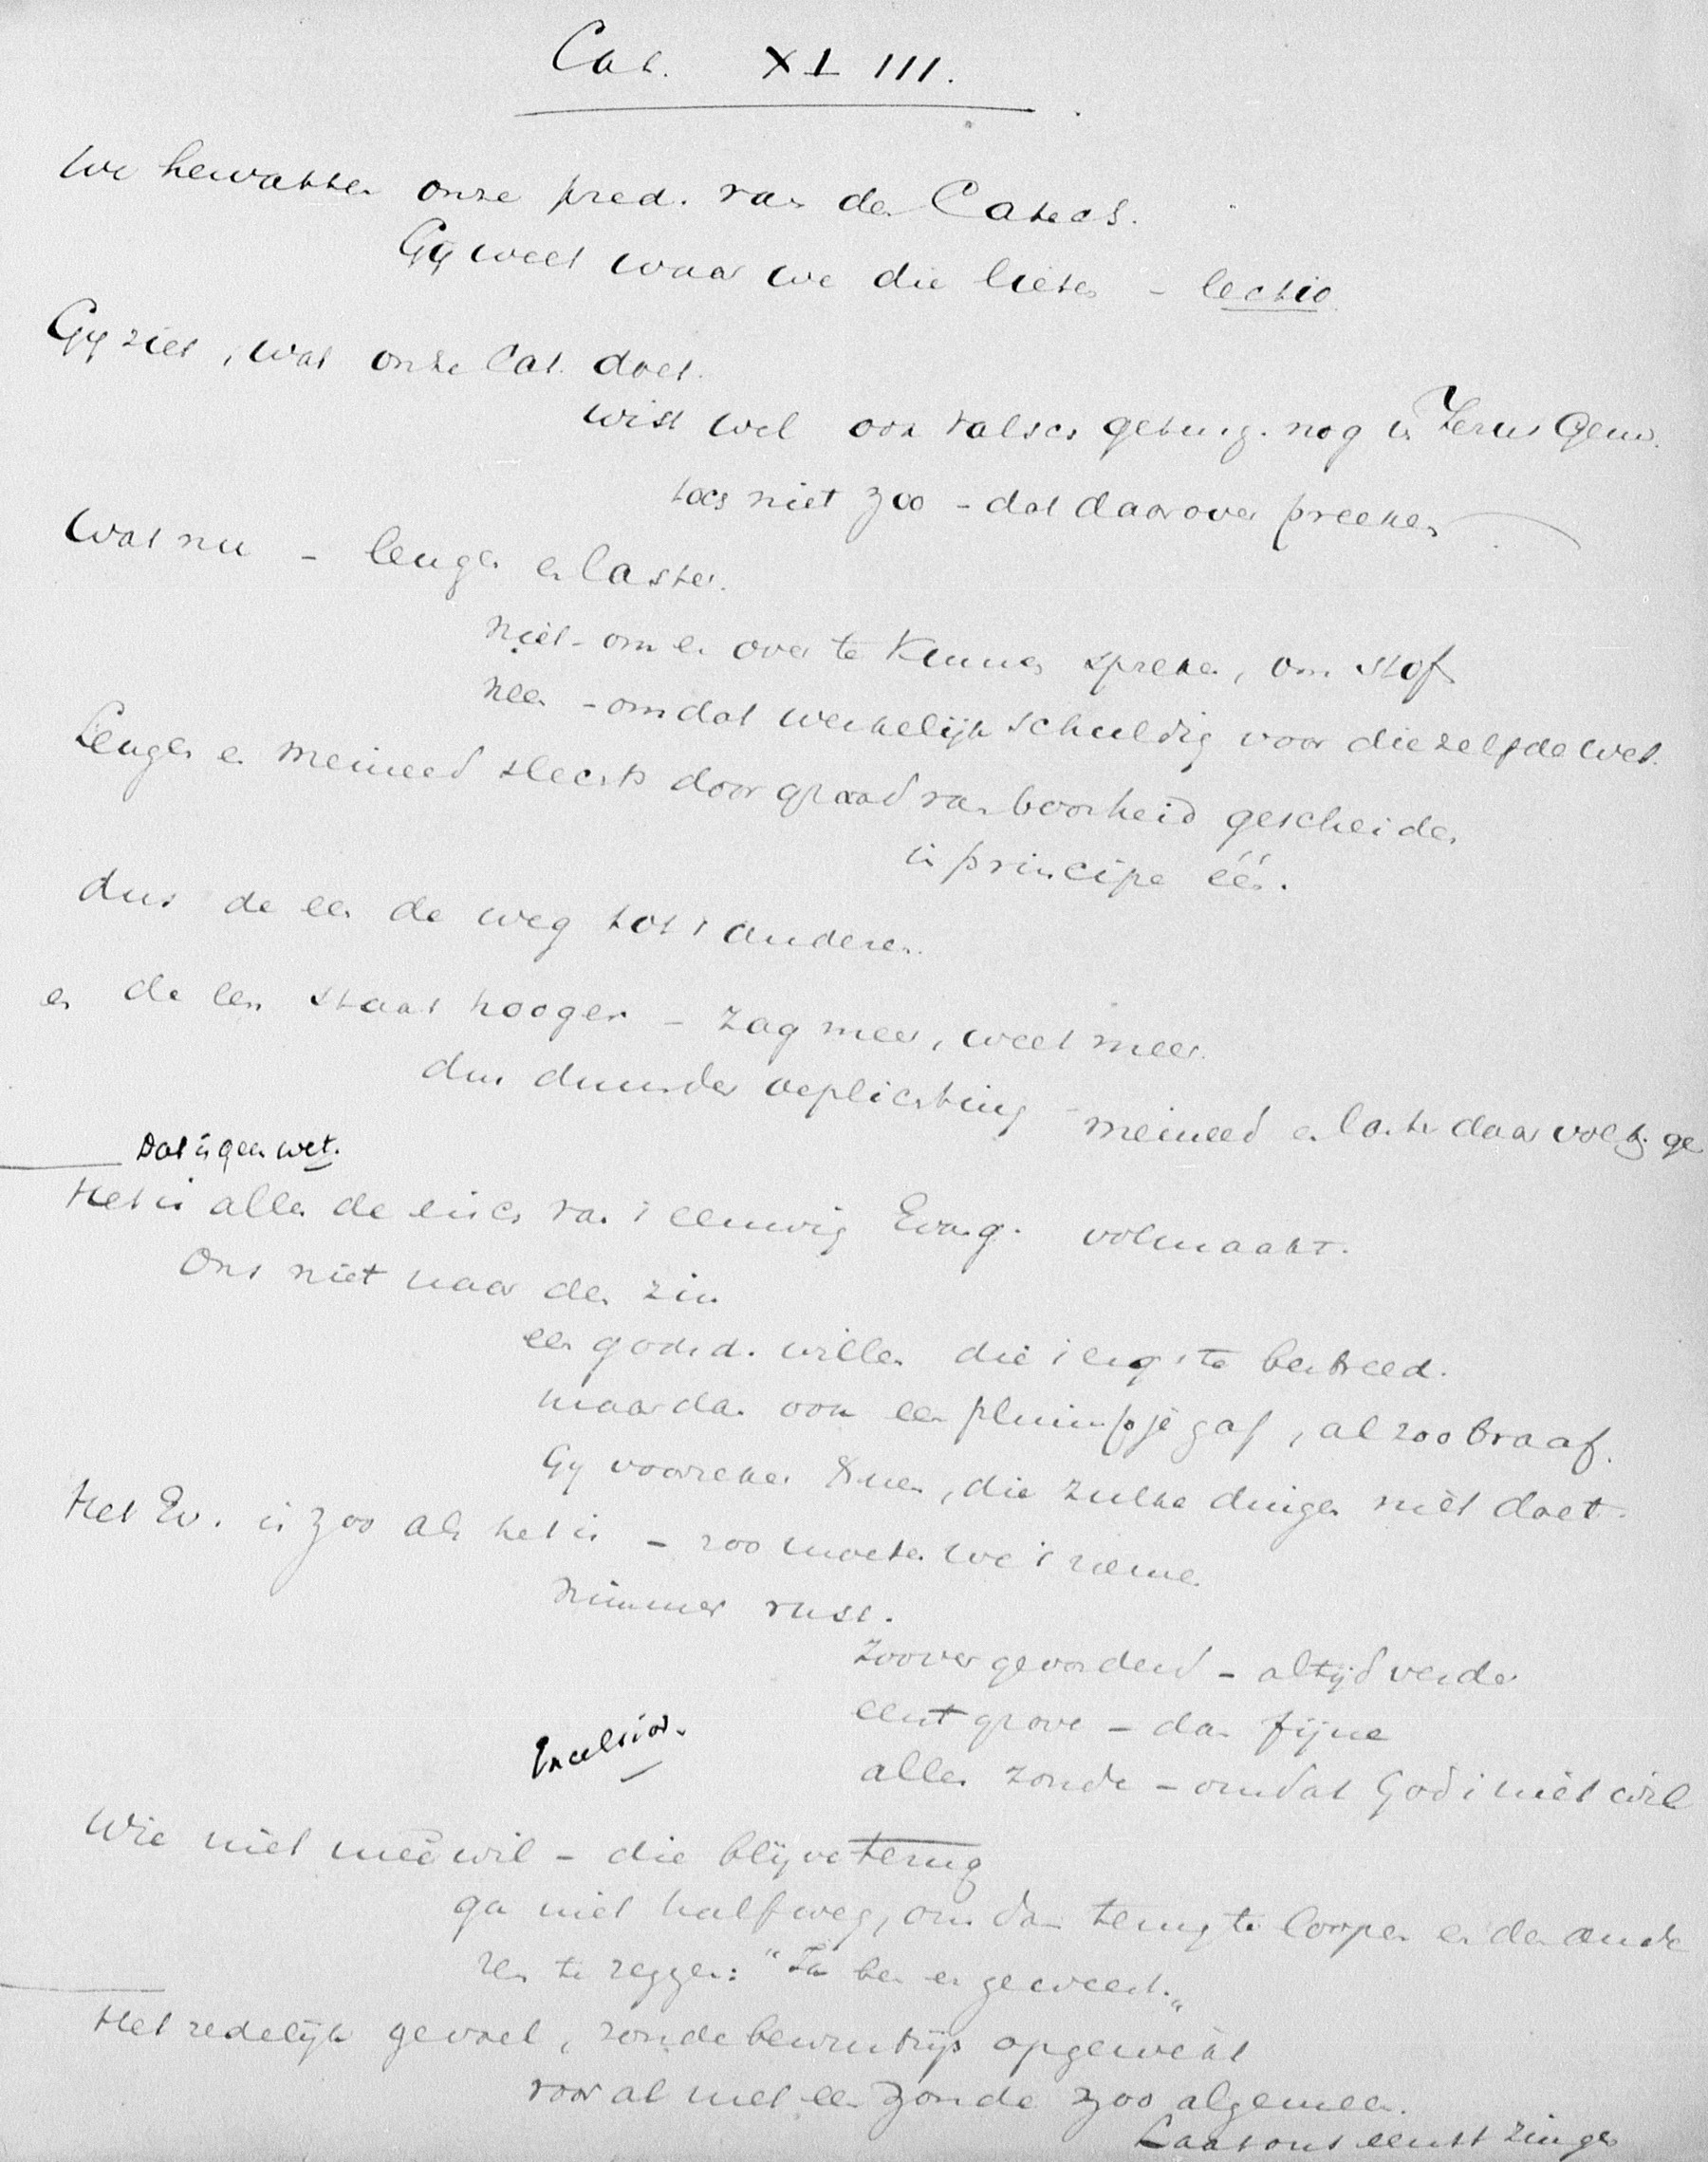 Cat. XLIII.
We hervatten onze pred. van den Catech.
Gij weet waar we die lieten – lectio
Gij ziet, wat onze Cat. doet.
wist wel ook valsch getuig. nog in Jezus Gem.
toch niet zoo – dat daarover preeken
Wat nu – leugen en laster.
niet – om er over te kunnen spreken, om stof
neen – omdat werkelijk schuldig voor diezelfde wet.
Leugen en meineed slechts door graad van boosheid gescheiden
in principe één.
dus de een de weg tot 't anderen.
en de een staat hooger – zag meer, weet meer.
dus duurder verplichting – meineed en laster daar
Dat is geen wet.
Het is alles de eisch van 't eeuwig Evang. volmaakt.
Ons niet naar den zin
een godsd. willen die 't ergste bestreed.
maar dan ook een pluimpje gaf, al zoo braaf.
Gij voorzeker, die zulke dingen niet doet.
Het Ev. is zoo als het is – zoo moeten we 't nemen
Nimmer rust.
Zoover gevorderd – altijd verder
eerst grove – dan fijne
Excelsior.
alles zonde – omdat God 't niet wil
Wie niet meê wil – die blijve terug
ga niet halfweg, om dan terug te loopen en den ande
ren te zeggen: "Ik ben er geweest."
Het zedelijk gevoel, zondebewustzijn opgewekt
vooral met een zonde zoo algemeen.
Laat ons eerst zingen